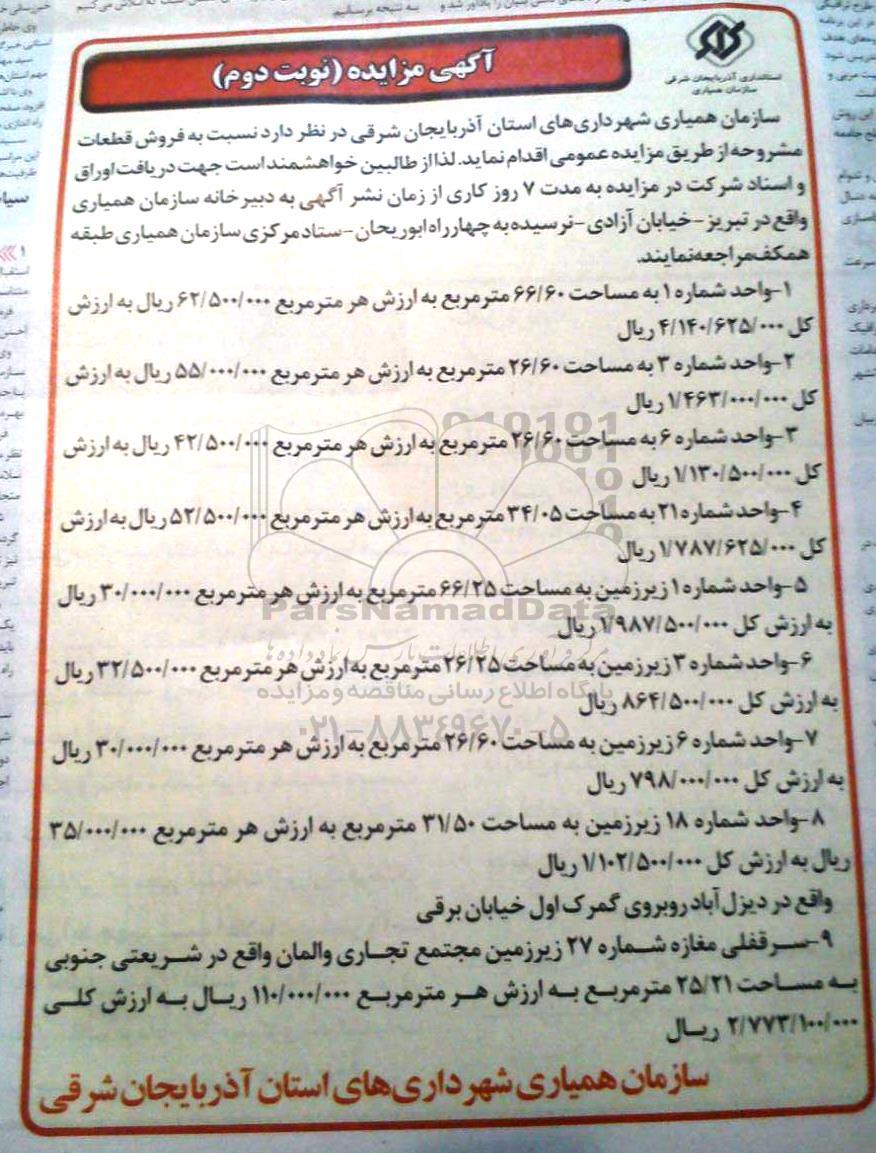 استانداری آذربایجان شرقی
سازمان همیاری
آگهی مزایده (نوبت دوم)
سازمان همیاری شهرداری‌های استان آذربایجان شرقی در نظر دارد نسبت به فروش قطعات
مشروحه از طریق مزایده عمومی اقدام نماید. لذا از طالبین خواهشمند است جهت دریافت اوراق
و اسناد شرکت در مزایده به مدت ۷ روز کاری از زمان نشر آگهی به دبیرخانه سازمان همیاری
واقع در تبریز - خیابان آزادی - نرسیده به چهارراه ابوریحان - ستاد مرکزی سازمان همیاری طبقه
همکف مراجعه نمایند.
۱- واحد شماره ۱ به مساحت ۶۶/۶۰ مترمربع به ارزش هر مترمربع ۶۲/۵۰۰/۰۰۰ ریال به ارزش
کل ۴/۱۴۰/۶۲۵/۰۰۰ ریال
۲- واحد شماره ۳ به مساحت ۲۶/۶۰ مترمربع به ارزش هر مترمربع ۵۵/۰۰۰/۰۰۰ ریال به ارزش
کل ۱/۴۶۳/۰۰۰/۰۰۰ ریال
۳- واحد شماره ۶ به مساحت ۲۶/۶۰ مترمربع به ارزش هر مترمربع ۴۲/۵۰۰/۰۰۰ ریال به ارزش
کل ۱/۱۳۰/۵۰۰/۰۰۰ ریال
۴- واحد شماره ۲۱ به مساحت ۳۴/۰۵ مترمربع به ارزش هر مترمربع ۵۲/۵۰۰/۰۰۰ ریال به ارزش
کل ۱/۷۸۷/۶۲۵/۰۰۰ ریال
۵- واحد شماره ۱ زیرزمین به مساحت ۶۶/۲۵ مترمربع به ارزش هر مترمربع ۳۰/۰۰۰/۰۰۰ ریال
به ارزش کل ۱/۹۸۷/۵۰۰/۰۰۰ ریال
ParsNamadData
مرکز فرآوری اطلاعات پارس نماد داده‌ها
۶- واحد شماره ۳ زیرزمین به مساحت ۲۶/۲۵ مترمربع به ارزش هر مترمربع ۳۲/۵۰۰/۰۰۰ ریال
پایگاه اطلاع رسانی مناقصه و مزایده
به ارزش کل ۸۶۴/۵۰۰/۰۰۰ ریال
۰۲۱-۸۸۳۴۹۶۷۰-۵
۷- واحد شماره ۶ زیرزمین به مساحت ۲۶/۶۰ مترمربع به ارزش هر مترمربع ۳۰/۰۰۰/۰۰۰ ریال
به ارزش کل ۷۹۸/۰۰۰/۰۰۰ ریال
۸- واحد شماره ۱۸ زیرزمین به مساحت ۳۱/۵۰ مترمربع به ارزش هر مترمربع ۳۵/۰۰۰/۰۰۰
ریال به ارزش کل ۱/۱۰۲/۵۰۰/۰۰۰ ریال
واقع در دیزل آباد روبروی گمرک اول خیابان برقی
۹- سرقفلی مغازه شماره ۲۷ زیرزمین مجتمع تجاری والمان واقع در شریعتی جنوبی
به مساحت ۲۵/۲۱ مترمربع به ارزش هر مترمربع ۱۱۰/۰۰۰/۰۰۰ ریال به ارزش کلی
۲/۷۷۳/۱۰۰/۰۰۰ ریال
سازمان همیاری شهرداری‌های استان آذربایجان شرقی